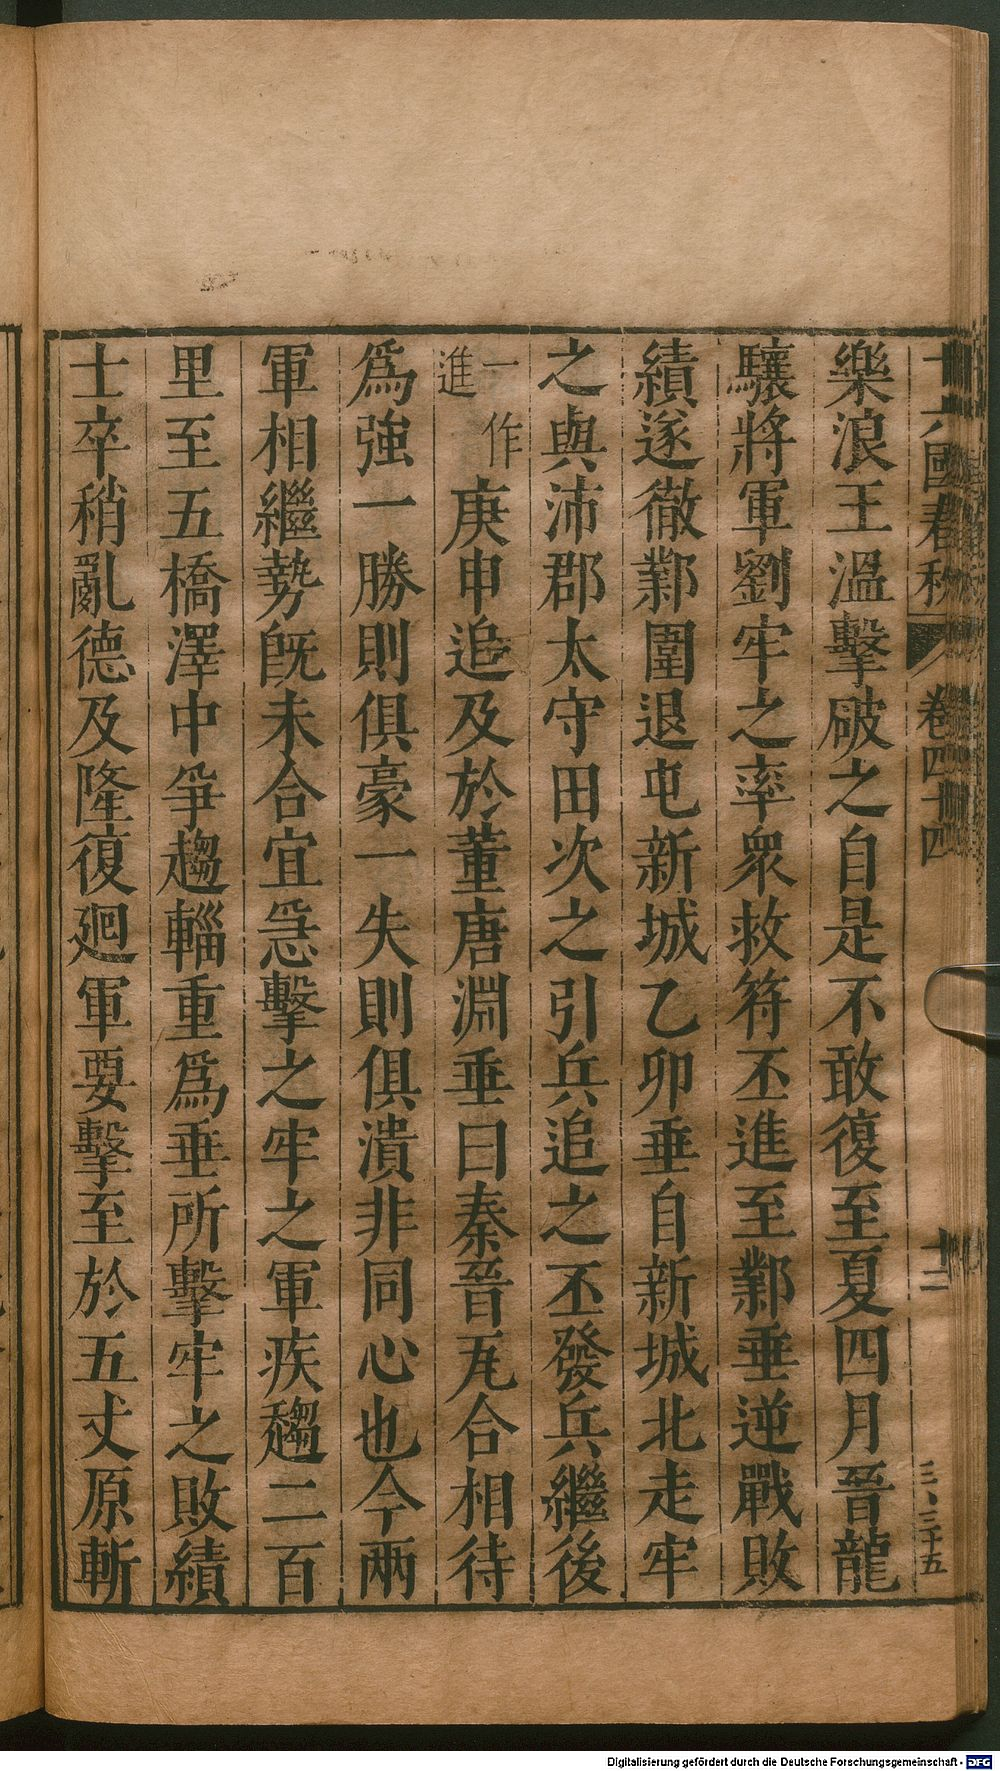 十六國春秋 卷四十四 十二 三、三十五
樂浪王溫擊破之自是不敢復至夏四月晉龍
驤將軍劉牢之率衆救符丕進至鄴垂逆戰敗
績遂徹鄴圍退屯新城乙卯垂自新城北走牢
之與沛郡太守田次之引兵追之丕發兵繼後
一作進庚申追及於董唐淵垂曰秦晉瓦合相待
爲強一勝則俱豪一失則俱潰非同心也今兩
軍相繼勢旣未合宜急擊之牢之軍疾趨二百
里至五橋澤中爭趨輜重爲垂所擊牢之敗績
士卒稍亂德及隆復廻軍要擊至於五丈原斬
Digitalisierung gefördert durch die Deutsche Forschungsgemeinschaft - DFG